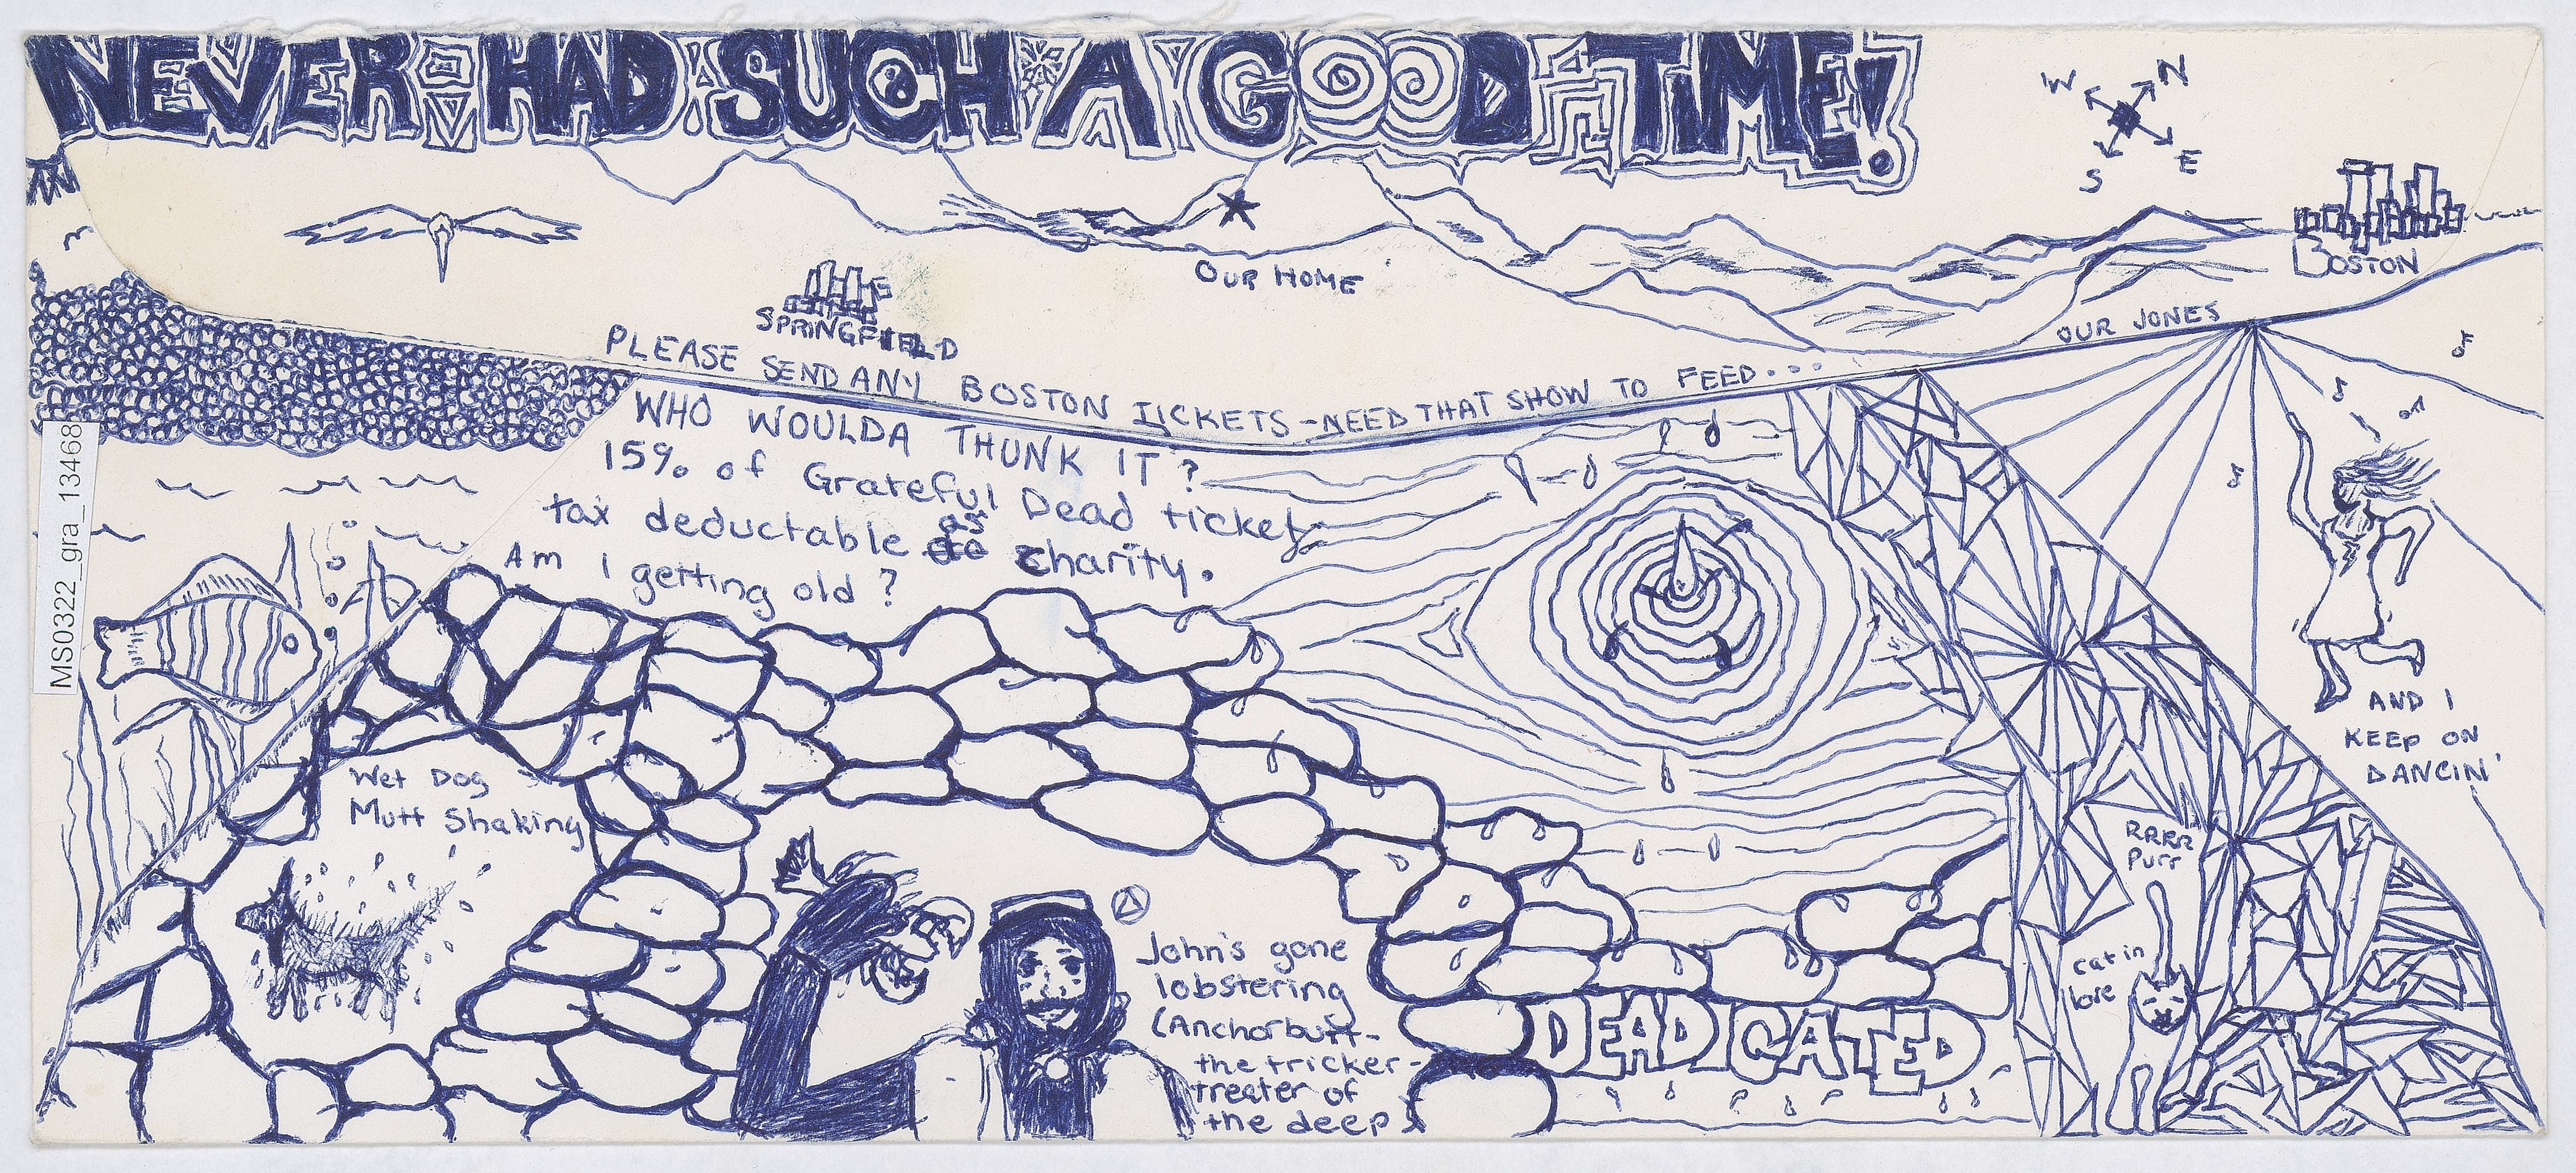 NEVER HAD SUCH A GOOD TIME!
W N
S E
BOSTON
OUR HOME
SPRINGFIELD
PLEASE SEND ANY BOSTON TICKETS - NEED THAT SHOW TO FEED... OUR JONES
WHO WOULDA THUNK IT?
15% of Grateful Dead tickets
tax deductable as charity.
Am I getting old?
MS0322_gra_13468
AND I
KEEP ON
DANCIN'
Wet Dog
Mutt Shaking
RRRR
Purr
cat in
love
John's gone
lobstering
(Anchorbutt-
the tricker-
treater of
the deep)
DEADICATED